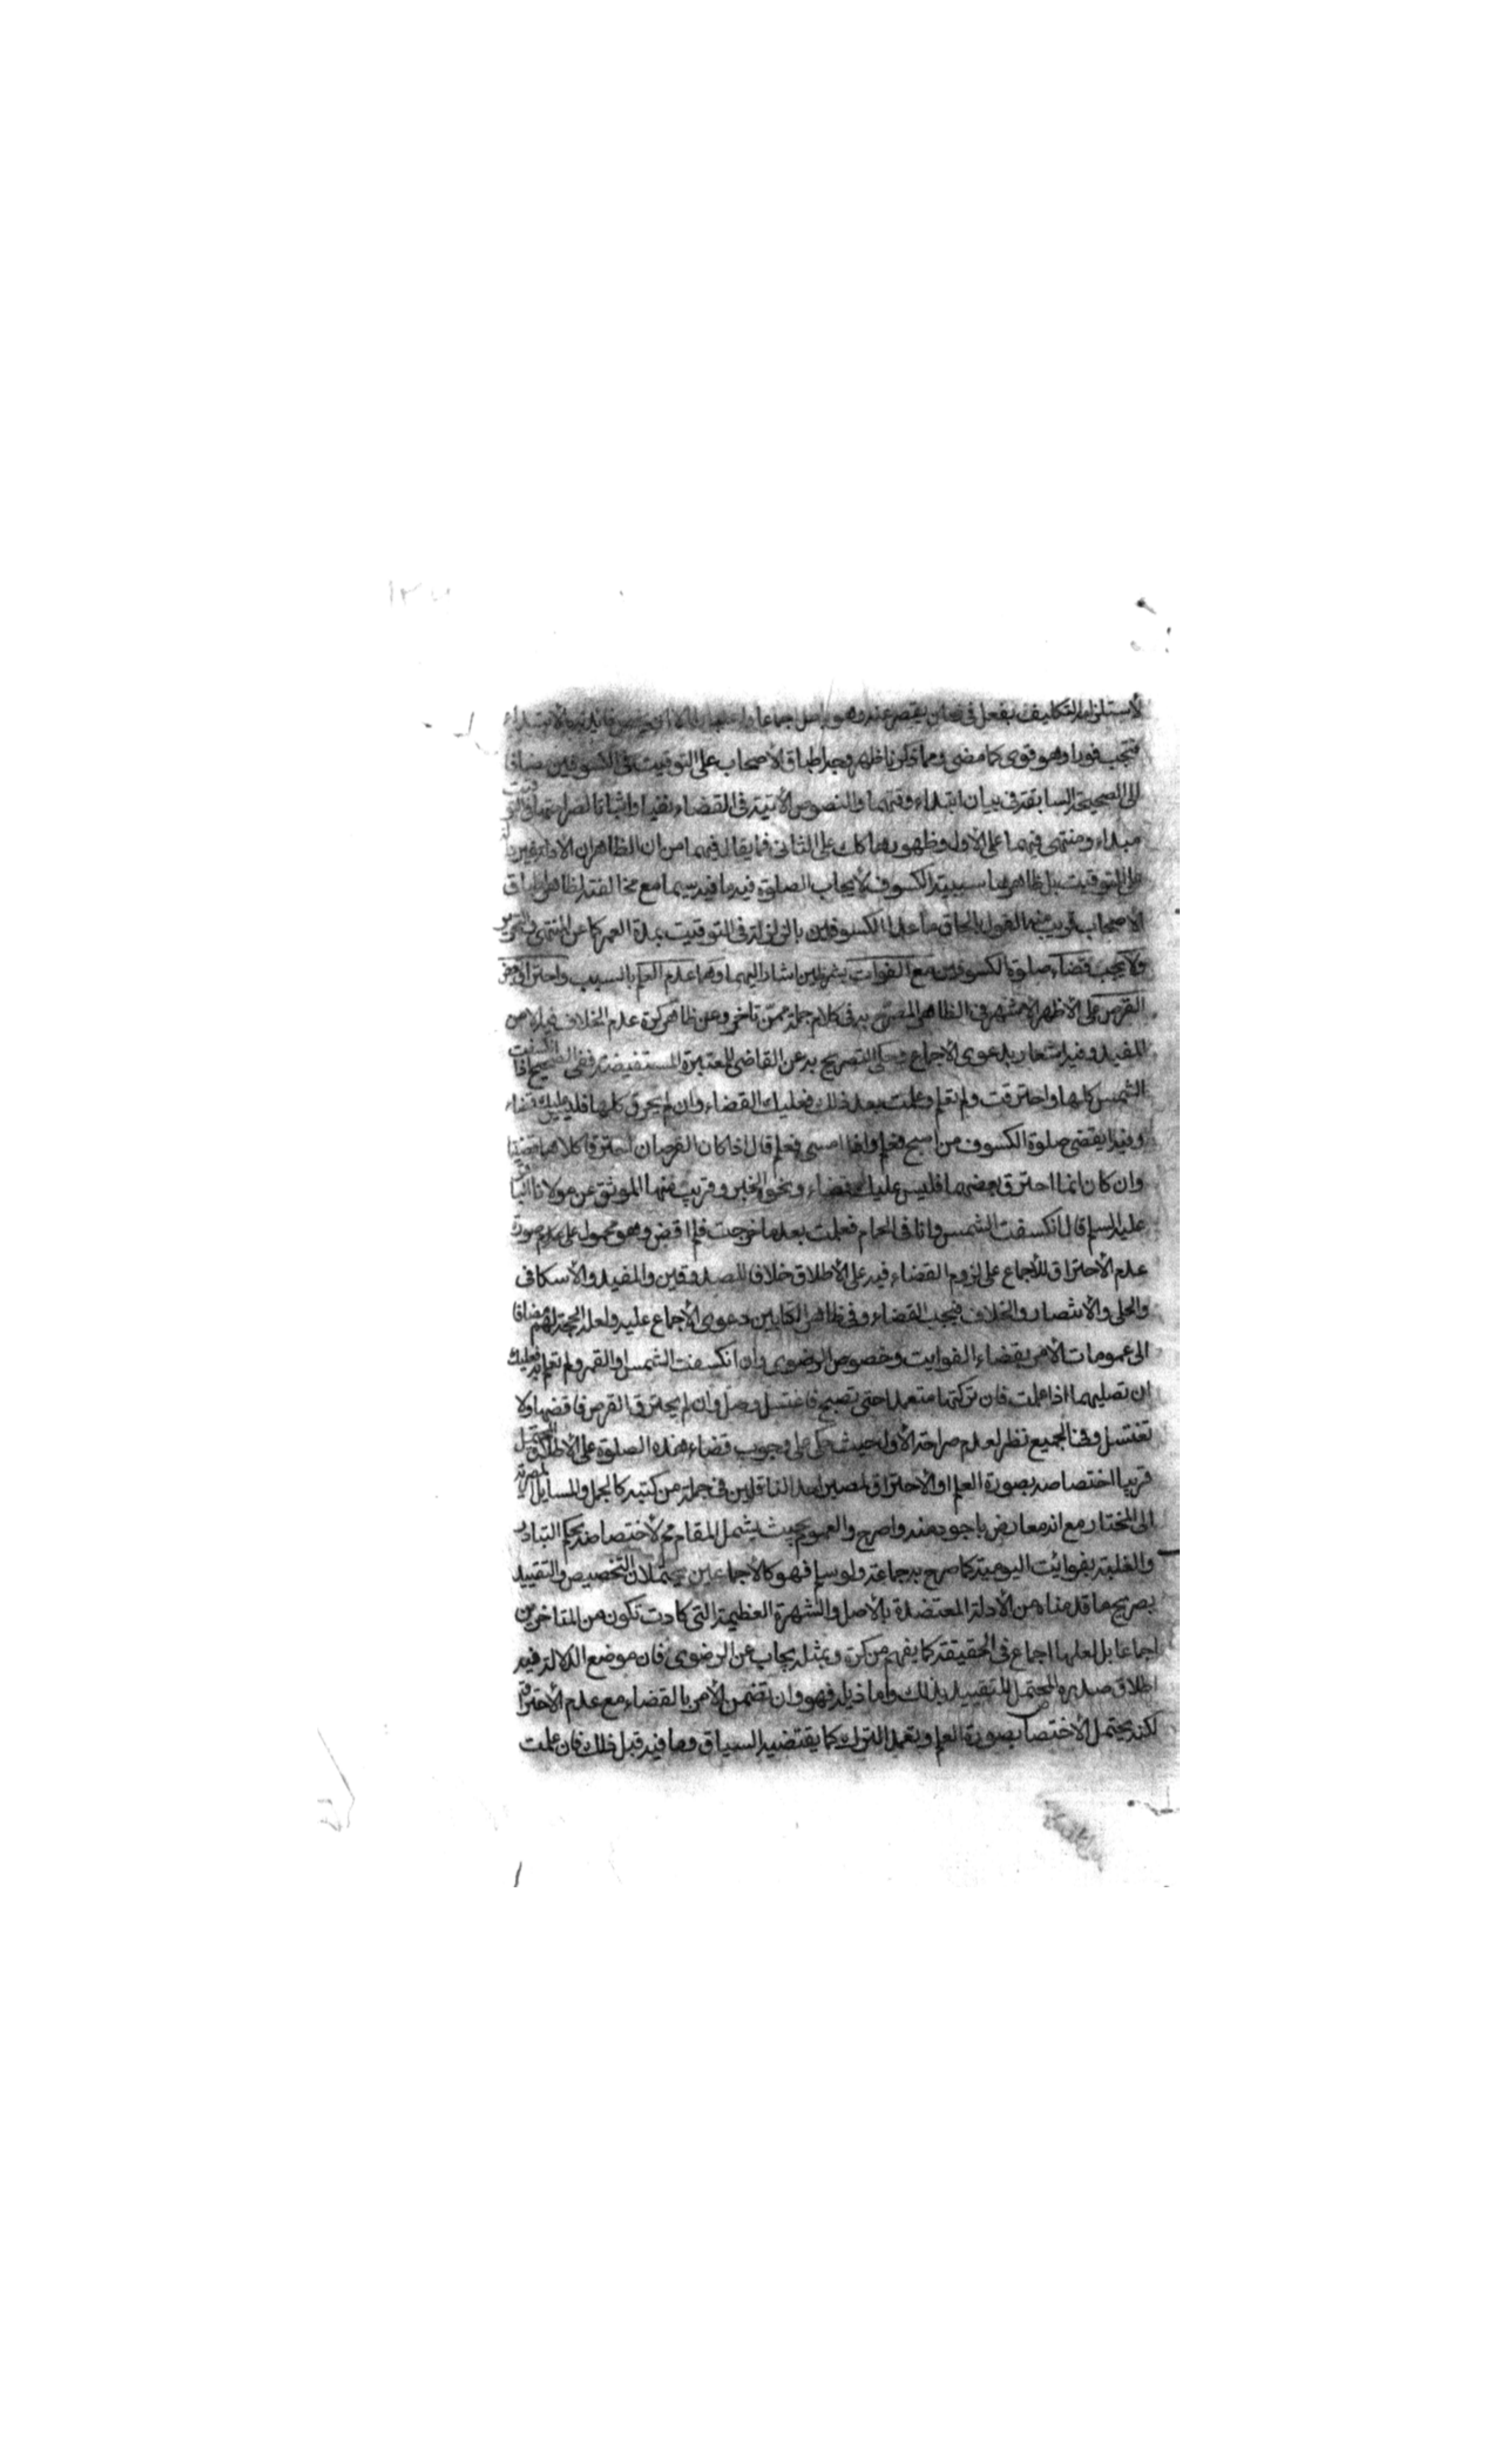 لاستلزامه التكليف بفعل في زمان يقصر عنه وهو باطل اجماعا
فتجب فورا وهو قوى كما مضى ومما ذكرنا ظهر وجه اطباق الاصحاب على التوقيت فى الكسوفين مضافا
الى الصحيحة السابقة فى بيان ابتداء وقتهما والنصوص الاتية فى القضاء نفيا واثباتا لصراحتهما فى التوقيت
مبداء ومنتهى فيهما على الاول وظهورهما كك على الثانى فما يقال فيهما من ان الظاهر ان الادلة غير دالة
على التوقيت بل ظاهرها سببية الكسوف لايجاب الصلوة فيه ما فيه سيما مع مخالفته لظاهر اطباق
الاصحاب قريب منه القول بالحاق ما عدا الكسوفين بالزلزلة فى التوقيت بمدة العمر كما عن المنتهى والتحرير
ولا يجب قضاء صلوة الكسوفين مع الفوات بشرطين اشار اليهما وهما عدم العلم بالسبب واحتراق بعض
القرص على الاظهر الاشهر فى الظاهر المصرح به فى كلام جملة ممن تاخر وعن ظاهر كرة عدم الخلاف فيه الا من
المفيد وفيه اشعار بدعوى الاجماع وحكى التصريح به عن القاضى للمعتبرة المستفيضة ففى الصحيح اذا انكسفت
الشمس كلها واحترقت ولم تعلم وعلمت بعد ذلك فعليك القضاء وان لم يحرق كلها فليس عليك قضاء
وفيه ايقضى صلوة الكسوف من اصبح فعلم واذا امسى فعلم قال اذا كان القرصان احترقا كلاهما قضيتها
وان كان انما احترق بعضهما فليس عليك قضاء ونحو الخبر وقريب منها الموثق عن مولانا الباقر
عليه السلم قال انكسفت الشمس وانا فى الحمام فعلمت بعد ما خرجت فلم اقض وهو محمول على صورة
عدم الاحتراق للاجماع على لزوم القضاء فيه على الاطلاق خلافا للصدوقين والمفيد والاسكافى
والحلى والانتصار والخلاف فيجب القضاء وفى ظاهر الكتابين دعوى الاجماع عليه ولعله الحجة لهم مضافا
الى عمومات الامر بقضاء الفوايت وخصوص الرضوى وان انكسفت الشمس او القمر ولم تعلم به فعليك
ان تصليهما اذا علمت فان تركتها متعمدا حتى تصبح فاغتسل وصل وان لم يحترق القرص فاقضها ولا
تغتسل وفى الجميع نظر لعدم صراحة الاول حيث حكى على وجوب قضاء هذه الصلوة على الاطلاق المحتمل
قريبا اختصاصه بصورة العلم او الاحتراق لمصير احد الناقلين فى جملة من كتبه كالجمل والمسايل المصرية
الى المختار مع انه معارض باجود منه واصرح والعموم بحيث يشمل المقام مح لاختصاصه بحكم التبادر
والغلبة بفوائت اليومية كما صرح به جماعة ولو سلم فهو كالاجماعين يحتملان التخصيص والتقييد
بصريح ما قدمناه من الادلة المعتضدة بالاصل والشهرة العظيمة التى كادت تكون من المتاخرين
اجماعا بل لعلها اجماع فى الحقيقة كما يفهم من كرة وبمثله يجاب عن الرضوى فان موضع الدلالة فيه
اطلاق صدره المحتمل للتقييد بذلك واما ذيله فهو وان تضمن الامر بالقضاء مع عدم الاحتراق
لكنه يحتمل الاختصاص بصورة العلم وتعمد الترك كما يقتضيه السياق وما فيه قبل ذلك فان علمت